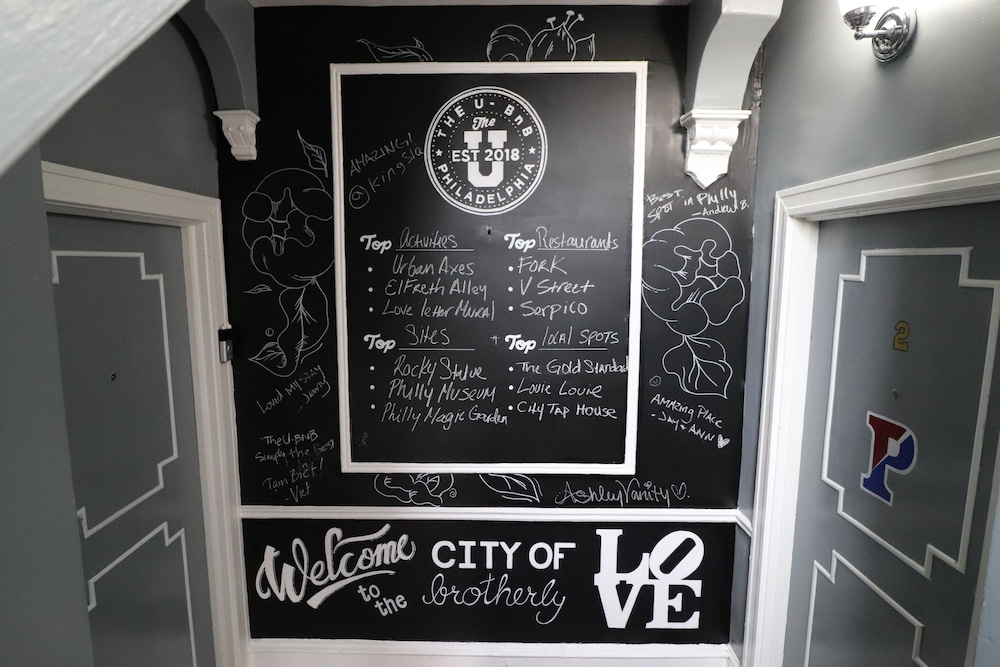 THE U - BnB
The
U
EST 2018
PHILADELPHIA
AMAZING!
@Kingsla
Top Activities
• Urban Axes
• Elfreth Alley
• Love letter Mural
Top Restaurants
• FORK
• V Street
• Serpico
Top Sites
• Rocky Statue
• Philly Museum
• Philly Magic Garden
+ Top Local Spots
• The Gold Standard
• Louie Louie
• City Tap House
Best
Spot in Philly
- Andrew B.
Loved my stay
The U-BNB
Simply the Best
Tạm Biệt!
- Viet
Amazing Place
- Jay + Ann
AshleyVanity
Welcome
to
the
CITY OF
brotherly
LO
VE
2
P